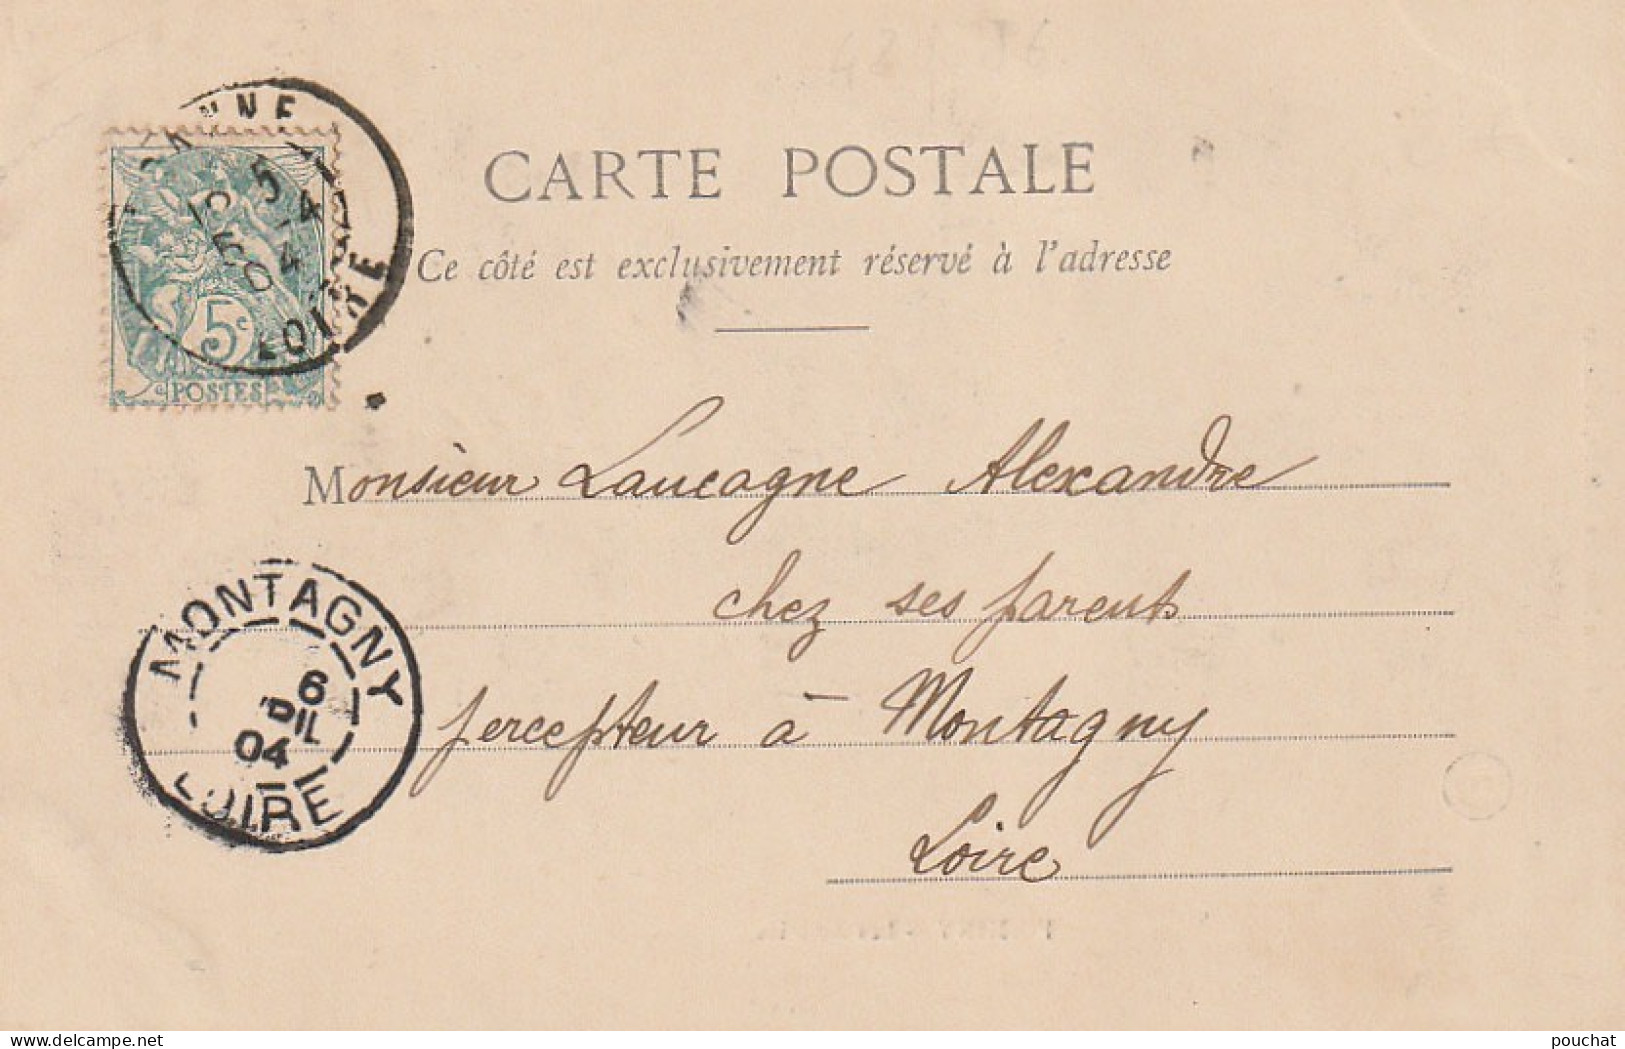 CARTE POSTALE
Ce côté est exclusivement réservé à l'adresse
5c
POSTES
5
5 - 4
04
LOIRE
Monsieur Laucagne Alexandre
chez ses parents
percepteur à Montagny
Loire
MONTAGNY
6
04
LOIRE
delcampe.net
pouchat